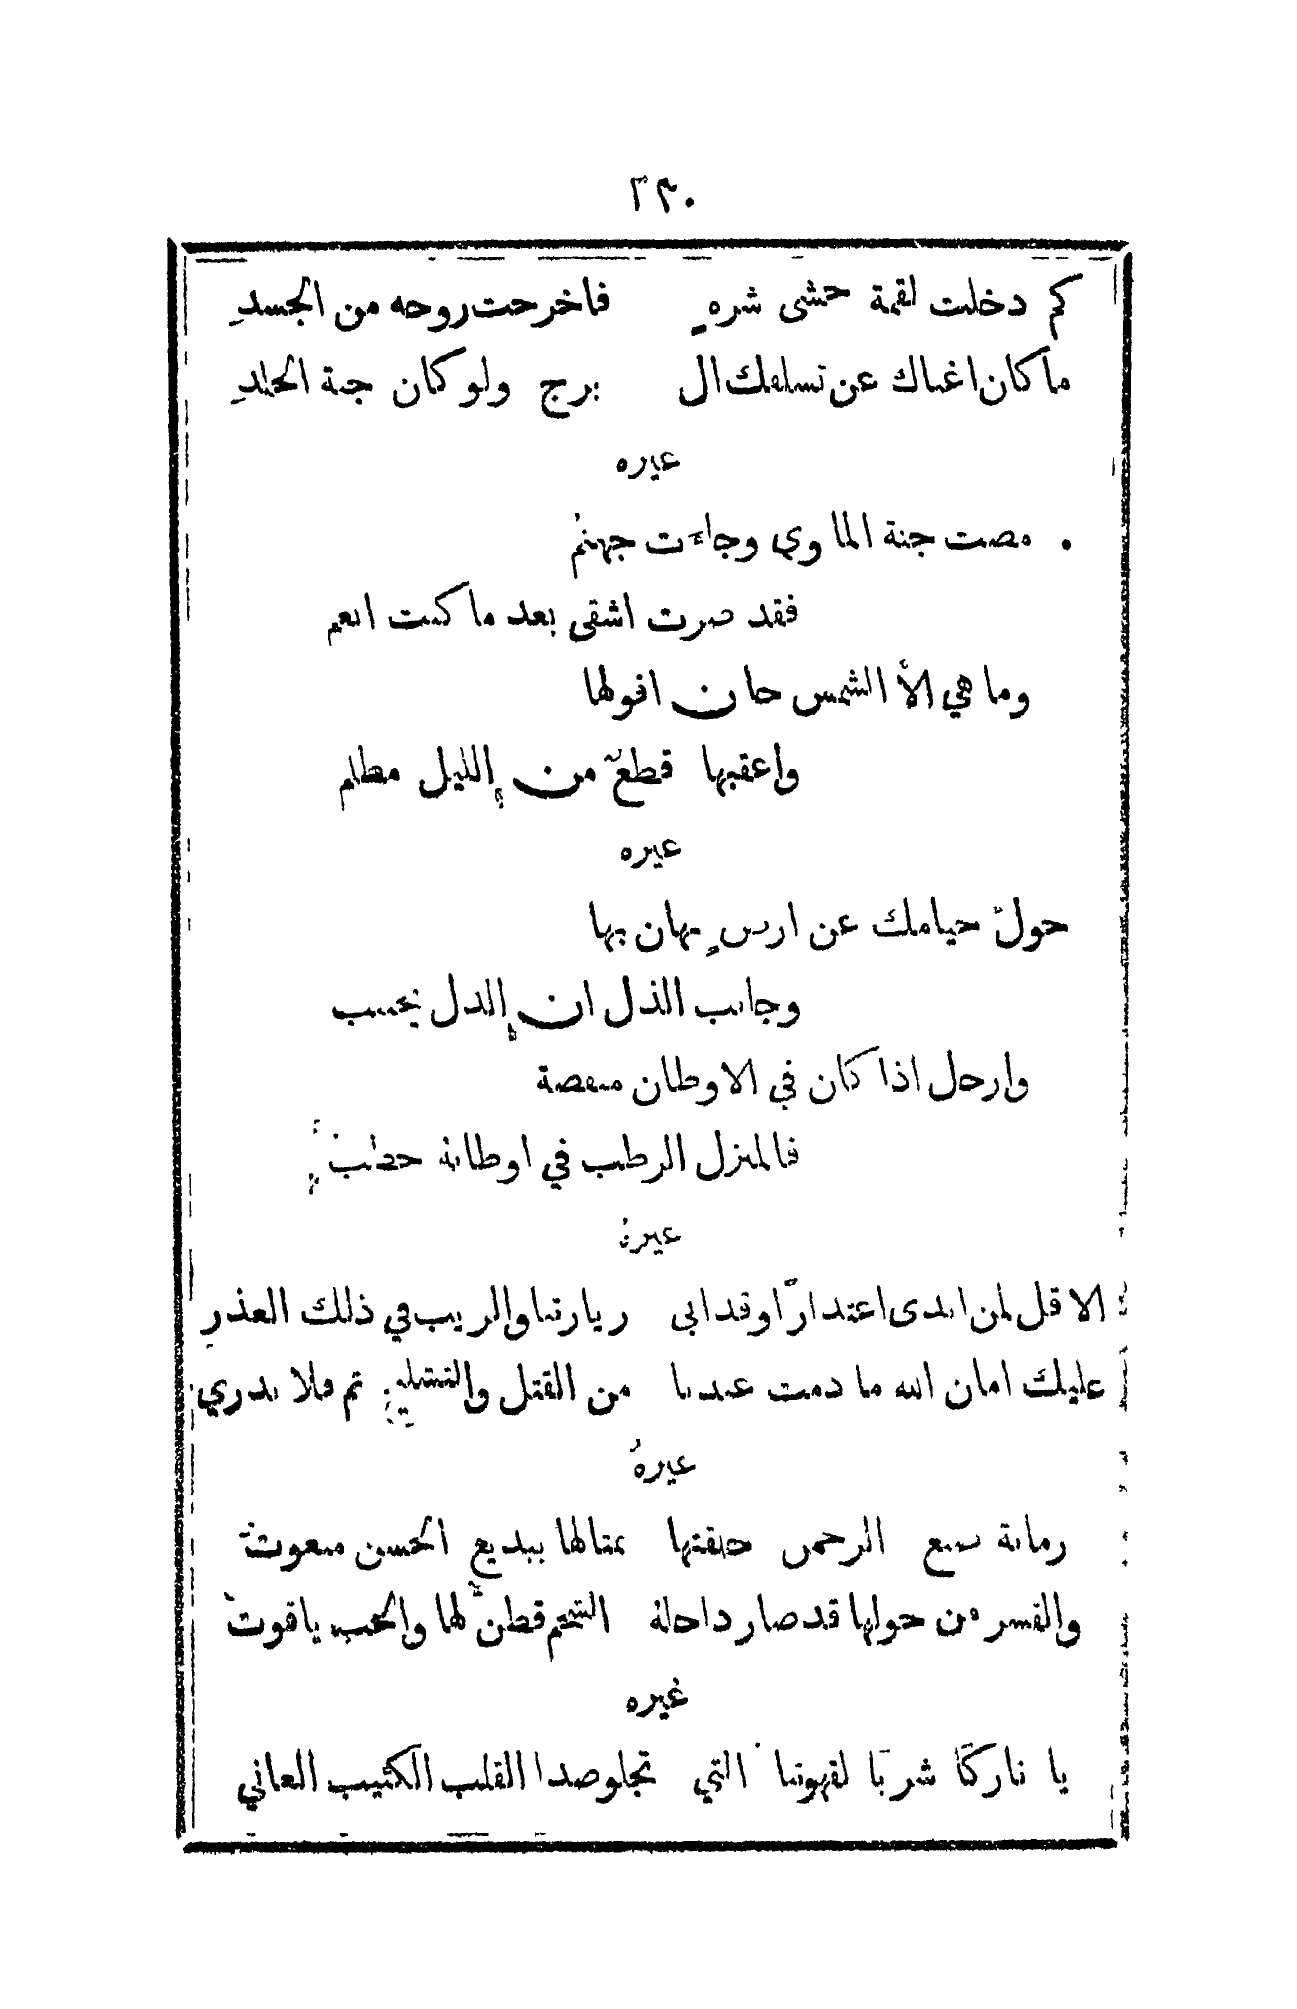 ٢٣٠
كم دخلت لقمة حشى شره فاخرجت روحه من الجسدِ
ما كان اغناك عن تسلقك ال برج ولو كان جنة الخلدِ
غيره
مضت جنة الماوي وجاءت جهنمُ
فقد صرت اشقى بعد ما كنت انعم
وما هي الاَّ الشمس حان افولها
واعقبها قطعٌ من الليل مظلم
غيره
حوّل خيامك عن ارضٍ تهان بها
وجانب الذل ان الذل يجتنب
وارحل اذا كان في الاوطان منقصة
فالمنزل الرطب في اوطانهِ حطب
غيرهُ
الا قل لمن ابدى اعتدارًا وقد ابى زيارتنا والريب في ذلك العذرِ
عليك امان الله ما دمت عندنا من القتل والتشليح ثم فلا تدري
غيرهُ
رمانة صنع الرحمن خلقتها تمثالها ببديع الحسن منعوتُ
والقسر من حولها قد صار داخلهُ الشحم قطنٌ لها والحب ياقوتُ
غيره
يا تاركًا شربًا لقهوتنا التي تجلو صدا القلب الكئيب العاني